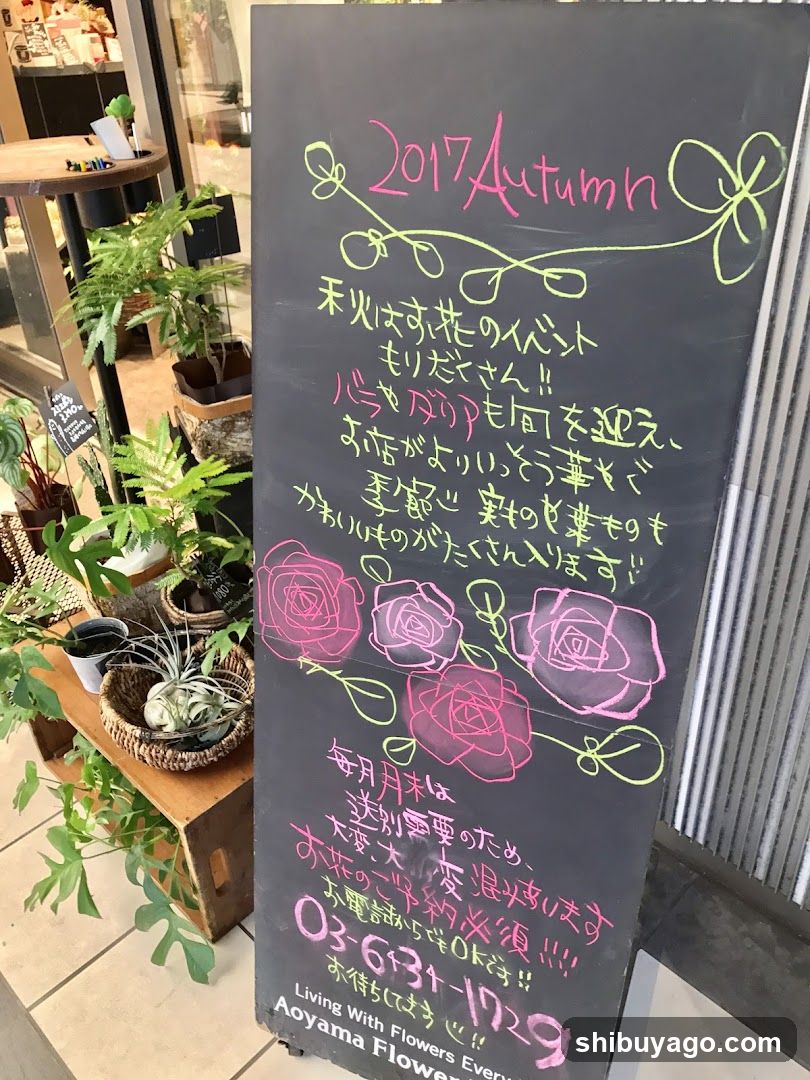 2017 Autumn
秋はお花のイベント
もりだくさん!!
バラやダリアも旬を迎え、
お店がよりいっそう華やぐ
季節♡ 実ものや葉ものも
かわいいものがたくさん入ります!!
毎月月末は
送別需要のため、
大変、大変混み合います
お花のご予約必須!!!!
お電話からでもOKです!!
03-6434-1729
お待ちしてます♡!!
Living With Flowers Every
Aoyama Flower
shibuyago.com